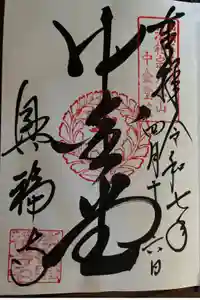 奉拝 令和七年
四月十六日
中金堂
興福寺